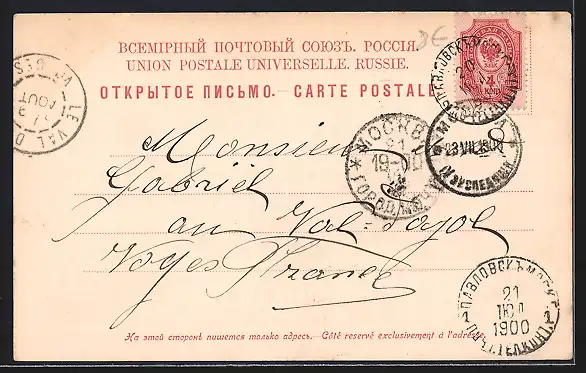 ВСЕМІРНЫЙ ПОЧТОВЫЙ СОЮЗЪ. РОССІЯ.
UNION POSTALE UNIVERSELLE. RUSSIE.
ОТКРЫТОЕ ПИСЬМО. — CARTE POSTALE.
4
LE VAL D
AOUT
МОСКВА
21
19-00
23 VII 1900
Monsieur
Gabriel
au Val-d'ajol
Vosges France
ПАВЛОВСКЪ
21
ІЮЛ
1900
На этой сторонѣ пишется только адресъ. — Côté reservé exclusivement à l'adresse.